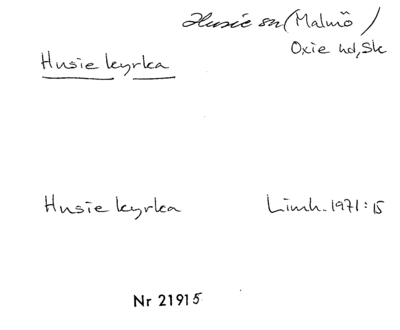 Husie sn (Malmö)
Oxie hd, Sk
Husie kyrka
Husie kyrka Limh. 1971:15
Nr 21915